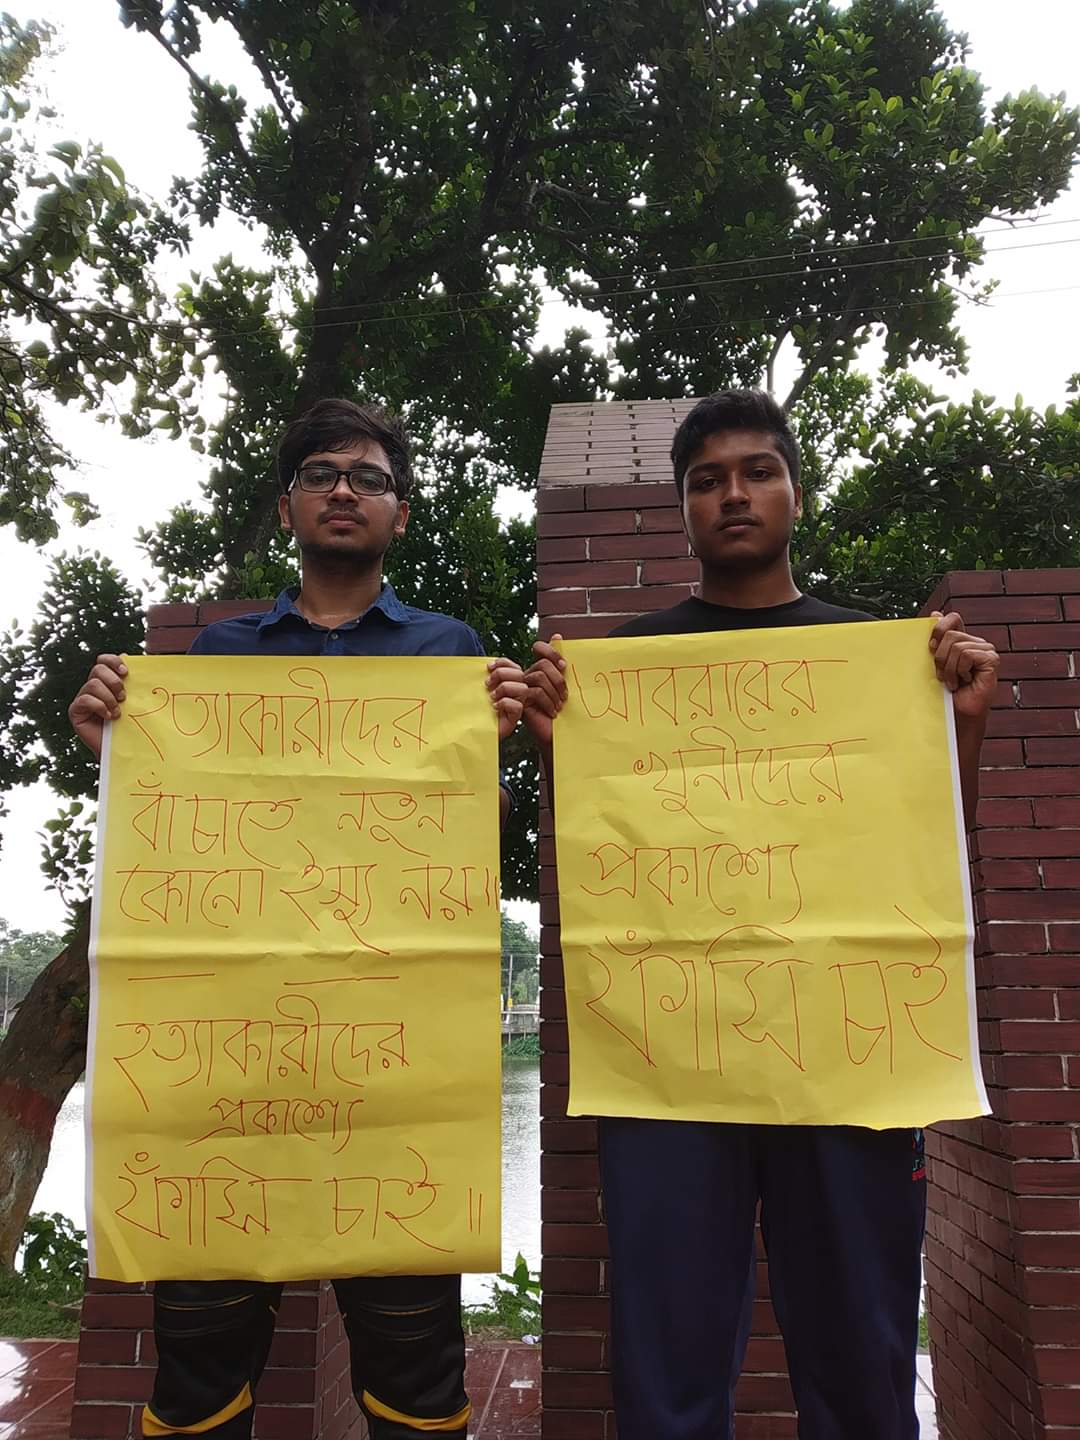 হত্যাকারীদের
বাঁচাতে নতুন
কোনো ইস্যু নয়॥
হত্যাকারীদের
প্রকাশ্যে
ফাঁসি চাই॥
আবরারের
খুনীদের
প্রকাশ্যে
ফাঁসি চাই